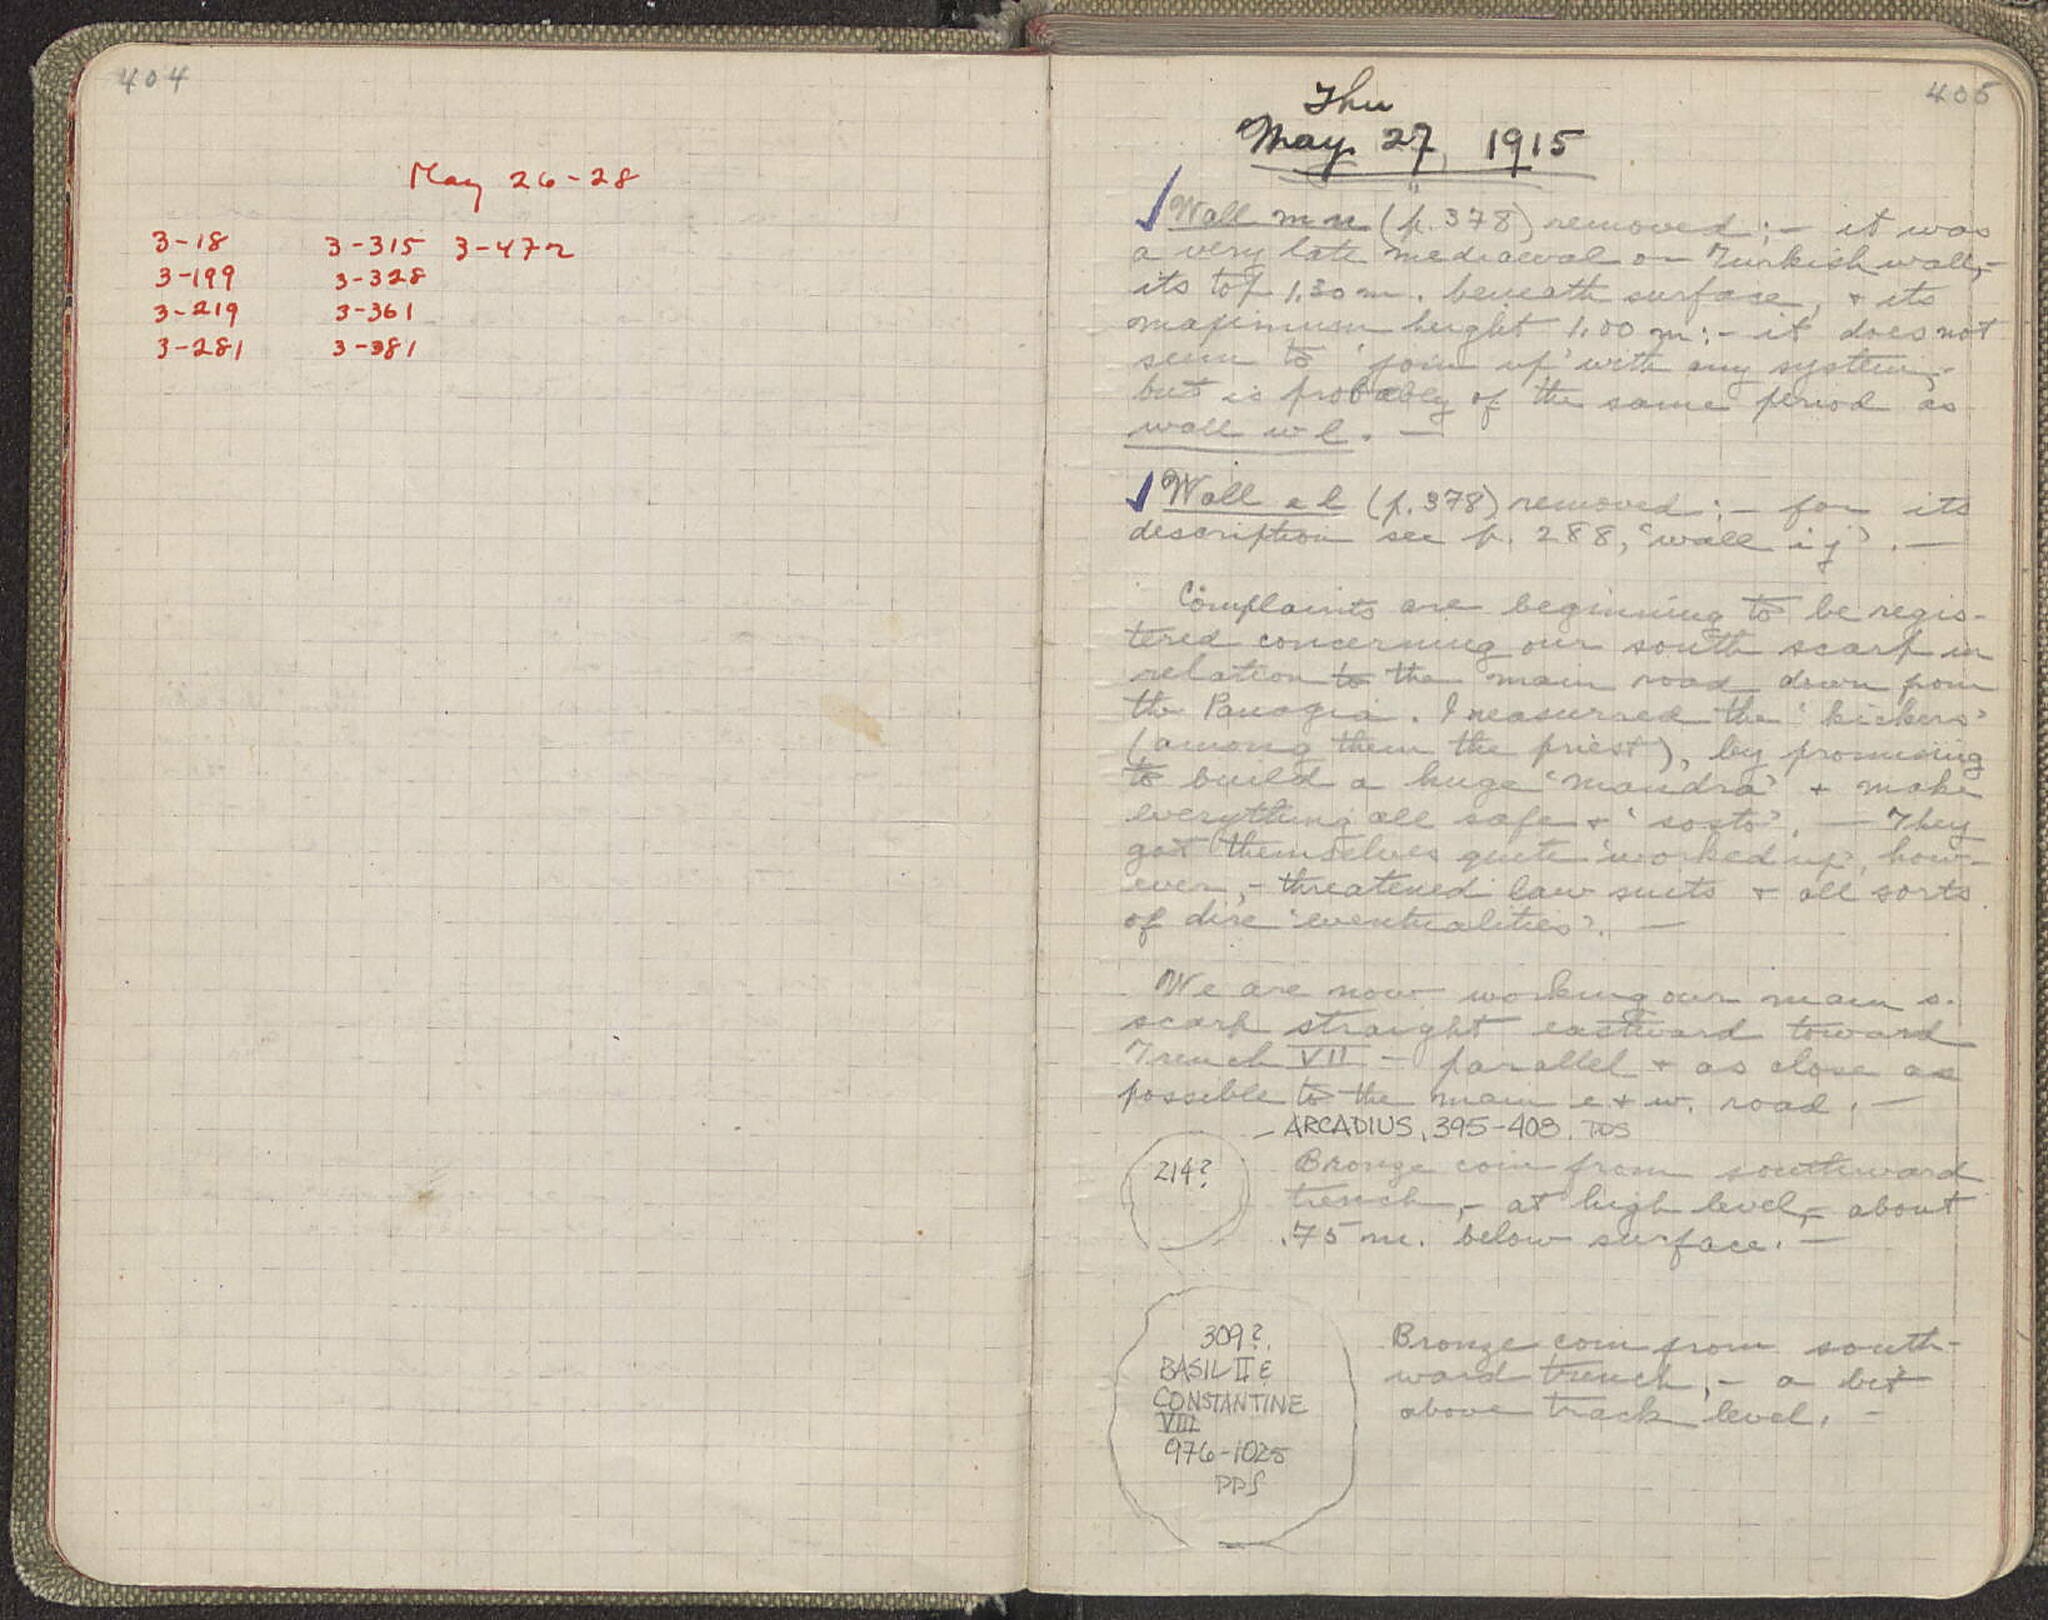 404
May 26-28
3-18 3-315 3-472
3-199 3-328
3-219 3-361
3-281 3-381
405
Thu
May 27, 1915
Wall m n (p. 378) removed; - it was
a very late mediaeval or Turkish wall, -
its top 1.30 m. beneath surface, + its
maximum height 1.00 m; - it does not
seem to 'join up' with any system, -
but is probably of the same period as
wall w l. -
Wall e l (p. 378) removed; - for its
description see p. 288, 'wall i j'. -
Complaints are beginning to be regis-
tered concerning our south scarp in
relation to the main road down from
the Panagia. I reassured the 'kickers'
(among them the priest), by promising
to build a huge 'mandra' + make
everything all safe + 'sosto'. - They
got themselves quite 'worked up', how-
ever, - threatened law suits + all sorts
of dire 'eventualities'. -
We are now working our main s.
scarp straight eastward toward
Trench VII - parallel + as close as
possible to the main e + w. road. -
- ARCADIUS, 395-408.
214?
Bronze coin from southward
trench, - at high level, - about
.75 m. below surface. -
309?
BASIL II &
CONSTANTINE
VIII
976-1025
Bronze coin from south-
ward trench, - a bit
above track level. -